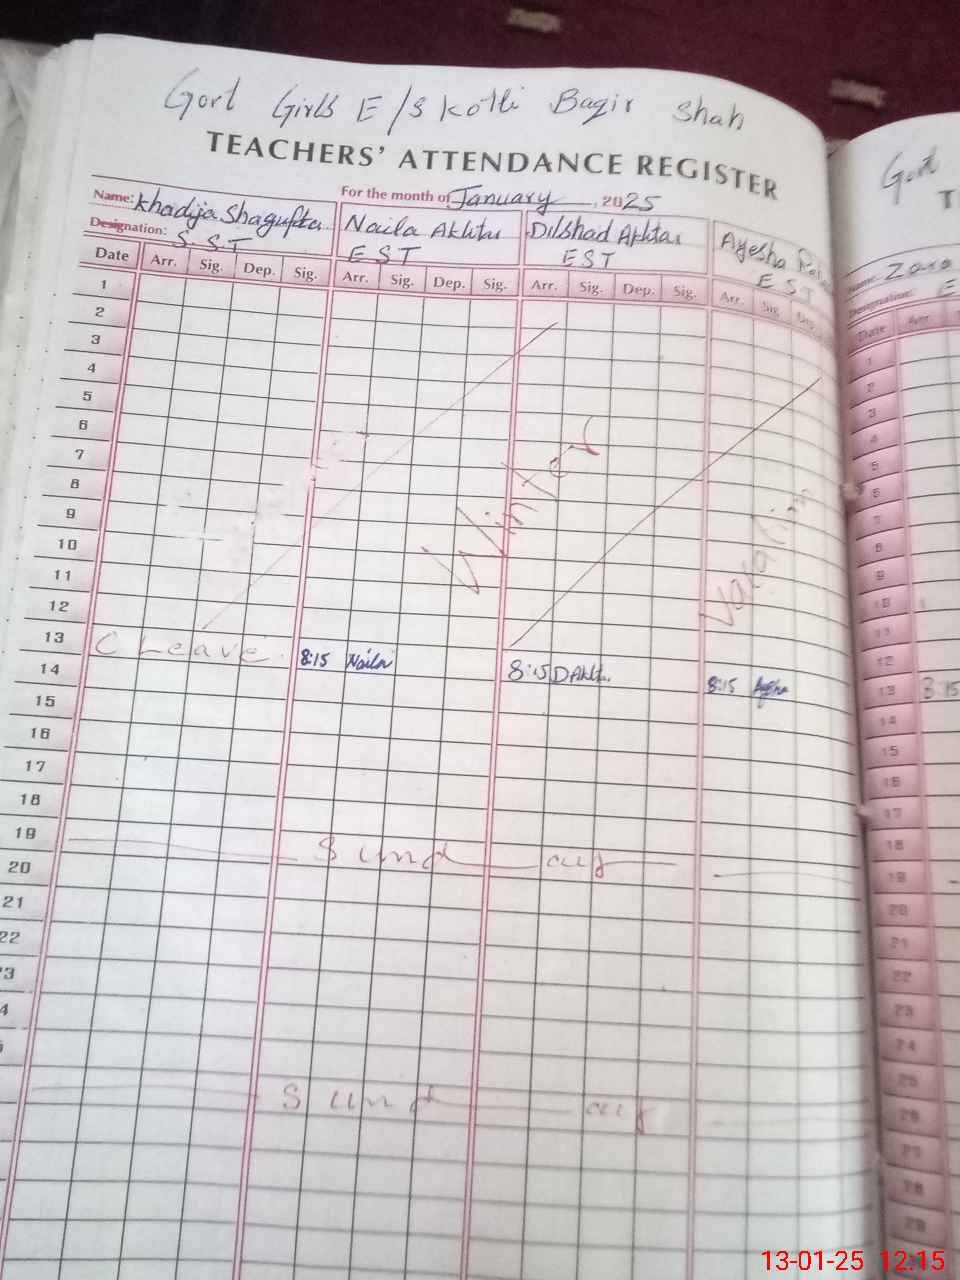 Govt Girls E/S Kotli Baqir Shah
TEACHERS' ATTENDANCE REGISTER
For the month of January, 2025
Name: Khadija Shagufta Naila Akhtar Dilshad Akhtar Ayesha
Designation: S S T E S T E S T E S T
Date Arr. Sig. Dep. Sig. Arr. Sig. Dep. Sig. Arr. Sig. Dep. Sig. Arr. Sig.
1
2
3
4
5
6
7
8
9
10
11
12
Winter
Vacation
13 C Leave 8:15 Naila 8:15 D Akht. 8:15
14
15
16
17
18
19 Sunday
20
21
22
23
Sunday
Govt
Name: Zara
Designation: E
Date Arr.
1
2
3
4
5
6
7
8
9
10
11
12
13 8:15
14
15
16
17
18
19
20
21
22
23
24
25
26
27
28
29
13-01-25 12:15